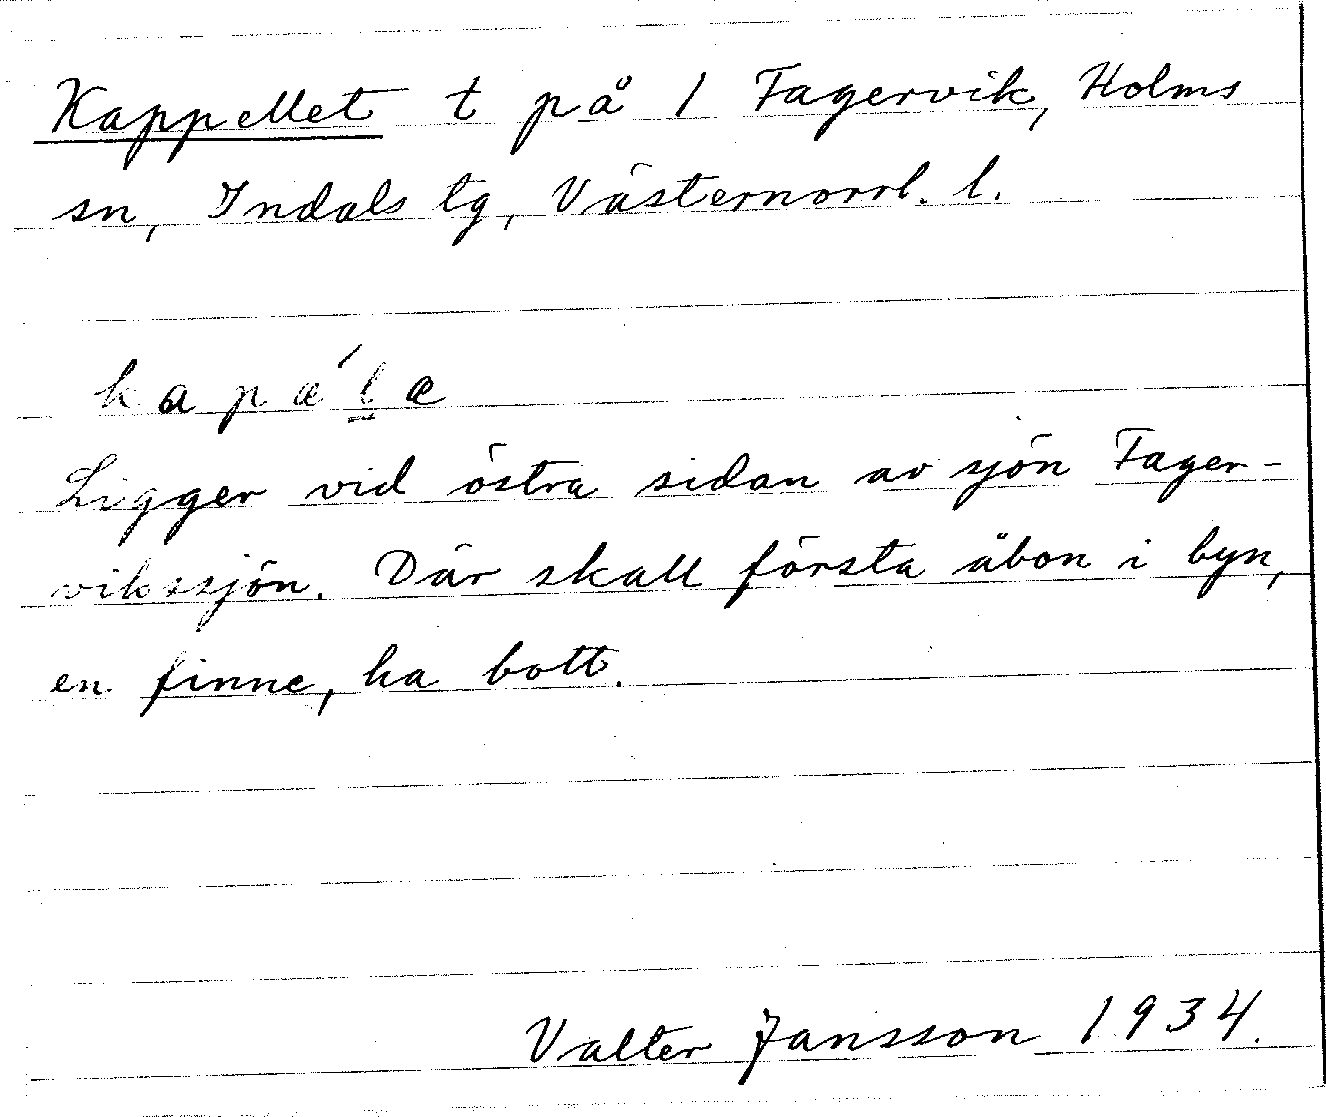 Kappellet t på 1 Fagervik, Holms
sn, Indals tg, Västernorrl. l.
kapæ´l̲æ
Ligger vid östra sidan av sjön Fager-
vikssjön. Där skall första åbon i byn,
en finne, ha bott.
Valter Jansson 1934.